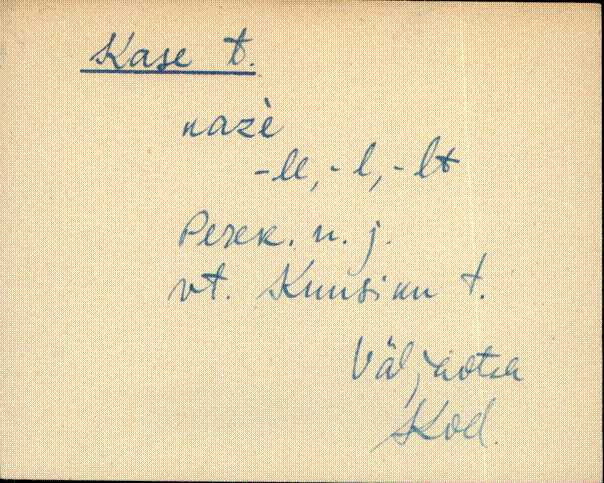 Kase t.
kazè
-le, -l, -lt
Perek. n. j.
vt. Kuusiku t.
Väljaotsa
Kod.